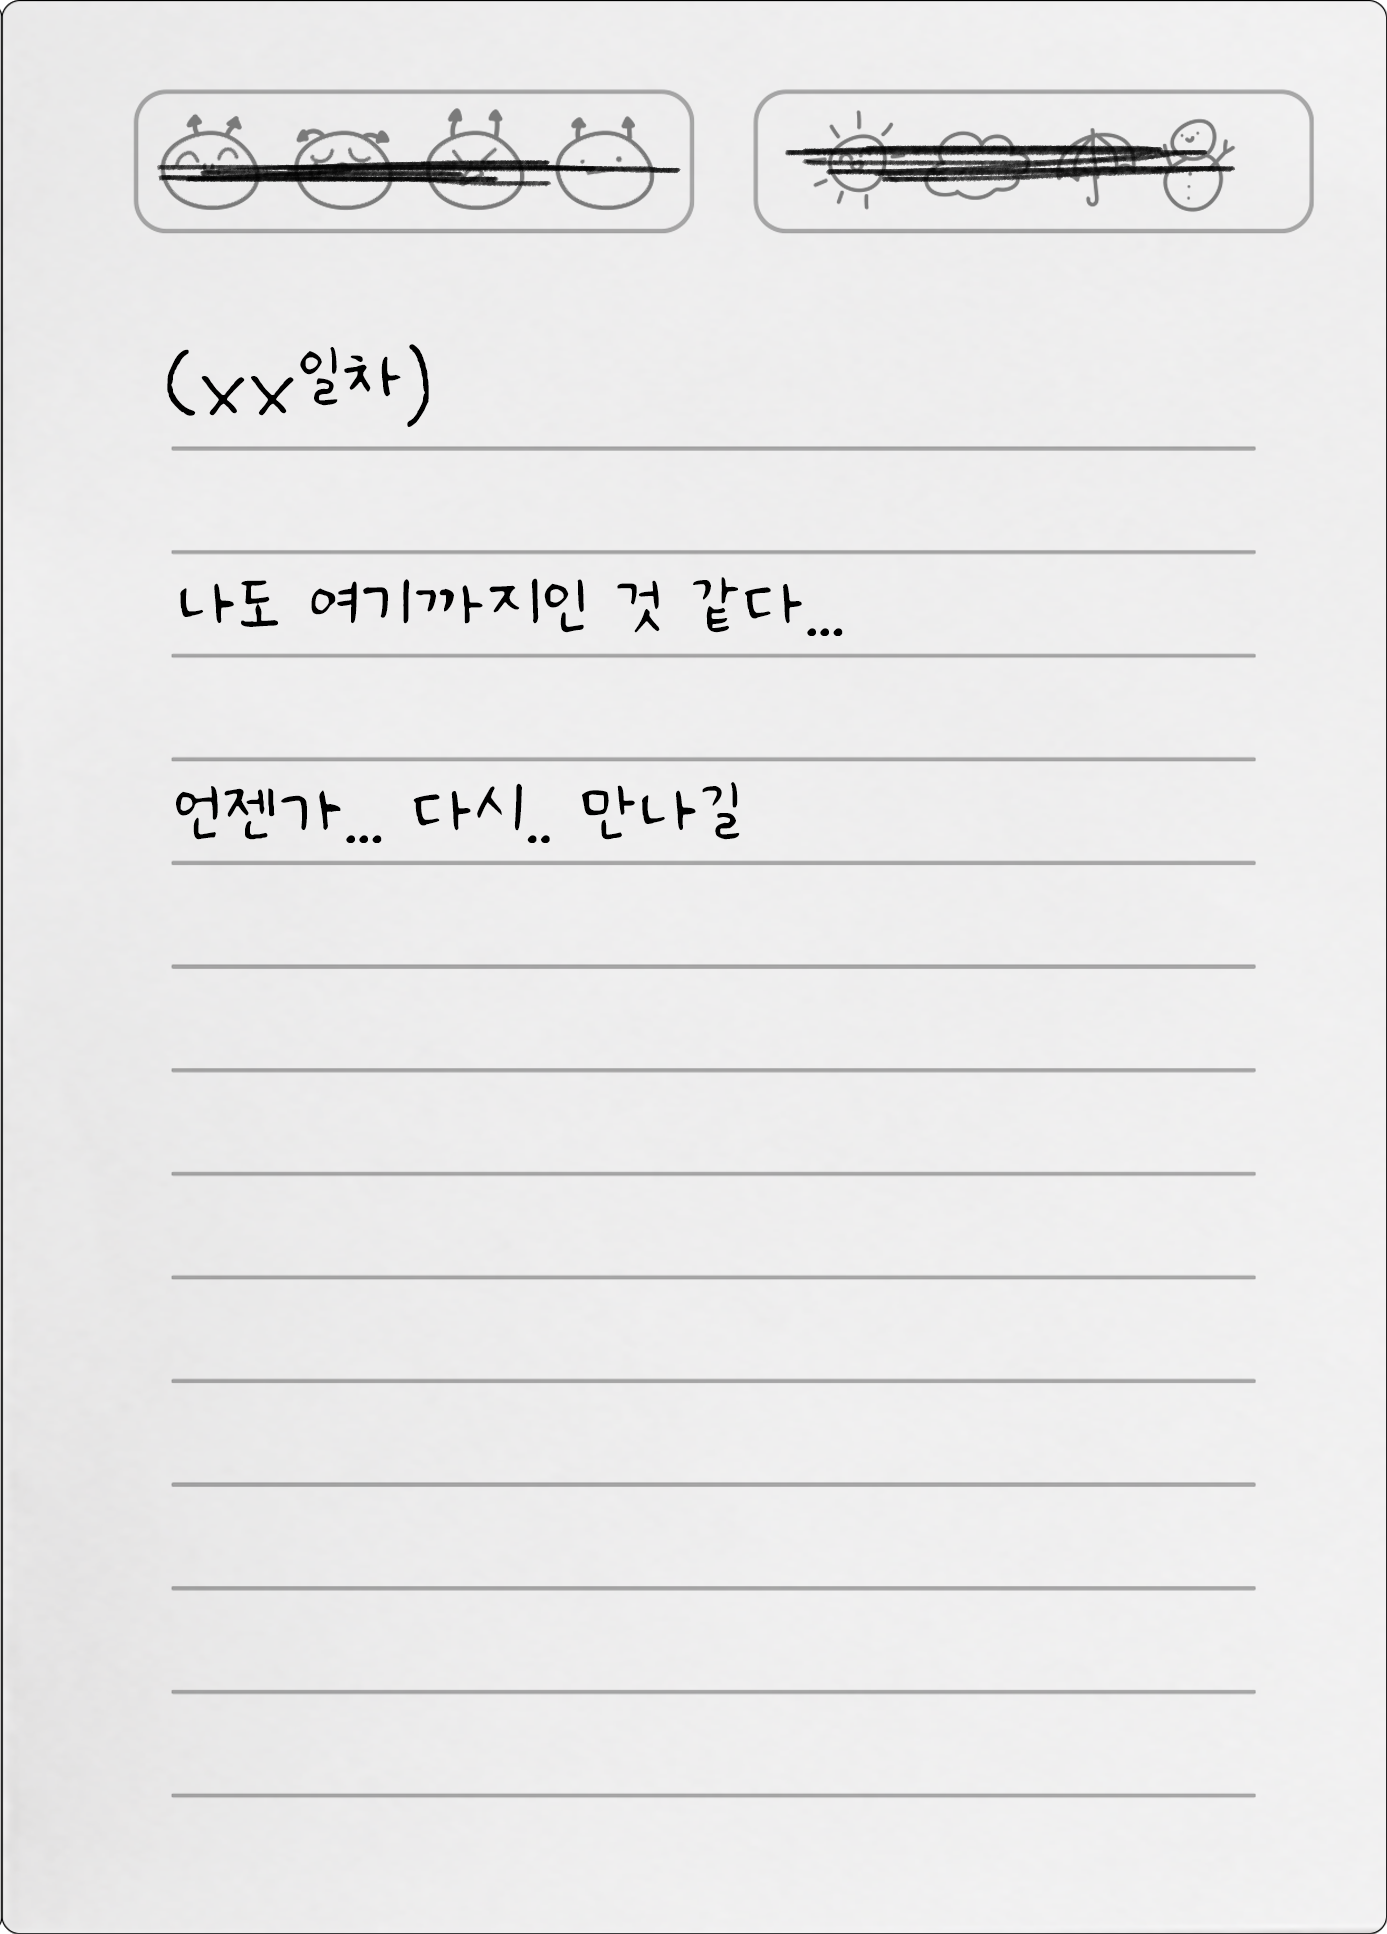 (xx일차)
나도 여기까지인 것 같다...
언젠가... 다시.. 만나길